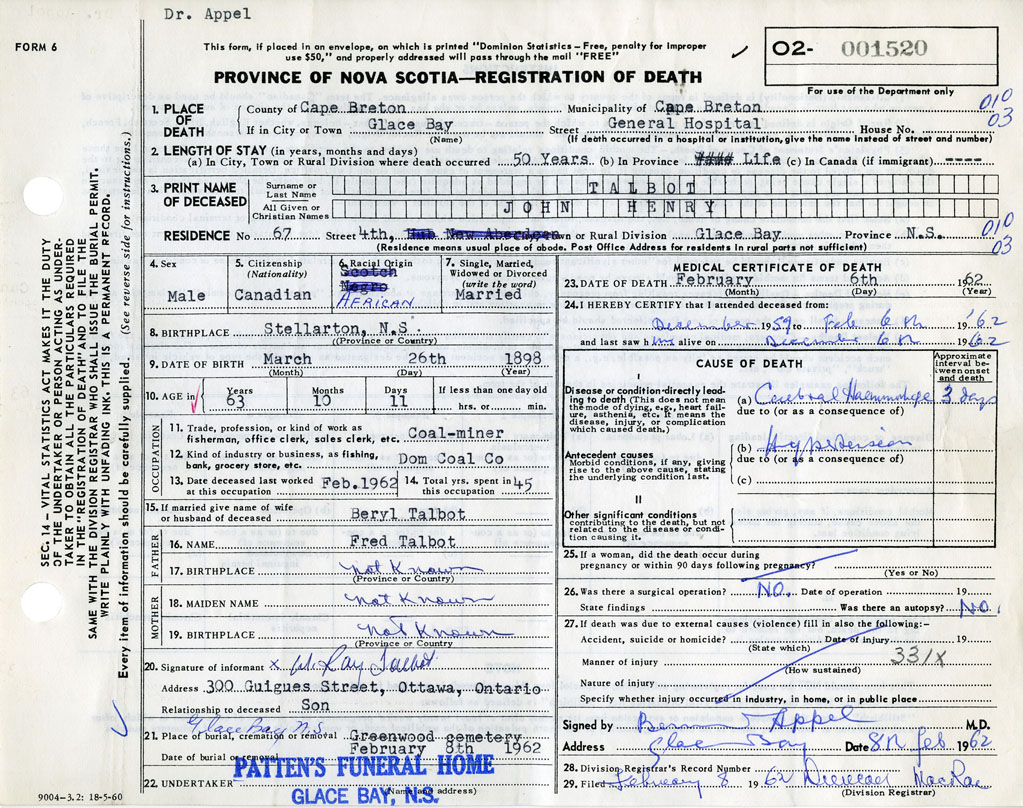 Dr. Appel
FORM 6
This form, if placed in an envelope, on which is printed "Dominion Statistics – Free, penalty for improper
use $50," and properly addressed will pass through the mail "FREE"
02- 001520
For use of the Department only
PROVINCE OF NOVA SCOTIA—REGISTRATION OF DEATH
010
03
1. PLACE OF DEATH County of Cape Breton Municipality of Cape Breton
If in City or Town Glace Bay Street General Hospital House No.
(Name) (If death occurred in a hospital or institution, give the name instead of street and number)
2. LENGTH OF STAY (in years, months and days)
(a) In City, Town or Rural Division where death occurred 50 Years (b) In Province Life (c) In Canada (if immigrant) ----
3. PRINT NAME OF DECEASED Surname or Last Name TALBOT
All Given or Christian Names JOHN HENRY
RESIDENCE No 67 Street 4th, Hub New Aberdeen City, Town or Rural Division Glace Bay Province N.S.
(Residence means usual place of abode. Post Office Address for residents in rural parts not sufficient)
010
03
4. Sex Male
5. Citizenship (Nationality) Canadian
6. Racial Origin Scotch Negro AFRICAN
7. Single, Married, Widowed or Divorced (write the word) Married
8. BIRTHPLACE Stellarton, N.S.
(Province or Country)
9. DATE OF BIRTH March 26th 1898
(Month) (Day) (Year)
10. AGE in Years 63 Months 10 Days 11 If less than one day old hrs. or min.
OCCUPATION
11. Trade, profession, or kind of work as fisherman, office clerk, sales clerk, etc. Coal-miner
12. Kind of industry or business, as fishing, bank, grocery store, etc. Dom Coal Co
13. Date deceased last worked at this occupation Feb.1962 14. Total yrs. spent in this occupation 45
15. If married give name of wife or husband of deceased Beryl Talbot
FATHER
16. NAME Fred Talbot
17. BIRTHPLACE Not Known
(Province or Country)
MOTHER
18. MAIDEN NAME Not Known
19. BIRTHPLACE Not Known
(Province or Country)
20. Signature of informant x W. Ray Talbot
Address 300 Guigues Street, Ottawa, Ontario
Relationship to deceased Son
Glace Bay N.S
21. Place of burial, cremation or removal Greenwood cemetery
Date of burial or removal February 8th 1962
22. UNDERTAKER PATTEN'S FUNERAL HOME
GLACE BAY, N.S.
(Name and address)
9004–3.2: 18-5-60
MEDICAL CERTIFICATE OF DEATH
23. DATE OF DEATH February 6th 1962
(Month) (Day) (Year)
24. I HEREBY CERTIFY that I attended deceased from:
December 1959 to Feb 6th 1962
and last saw him alive on December 6th 1962
CAUSE OF DEATH
Approximate interval between onset and death
I
Disease or condition directly leading to death (This does not mean the mode of dying, e.g., heart failure, asthenia, etc. It means the disease, injury, or complication which caused death.)
(a) Cerebral Haemorrhage 3 days
due to (or as a consequence of)
Antecedent causes
Morbid conditions, if any, giving rise to the above cause, stating the underlying condition last.
(b) Hypertension
due to (or as a consequence of)
(c)
II
Other significant conditions
contributing to the death, but not related to the disease or condition causing it.
25. If a woman, did the death occur during pregnancy or within 90 days following pregnancy?
(Yes or No)
26. Was there a surgical operation? NO. Date of operation 19
State findings Was there an autopsy? NO.
27. If death was due to external causes (violence) fill in also the following:-
Accident, suicide or homicide? Date of injury 19
(State which)
Manner of injury 331X
(How sustained)
Nature of injury
Specify whether injury occurred in industry, in home, or in public place
Signed by Appel M.D.
Address Glace Bay Date 8th Feb 1962
28. Division Registrar's Record Number
29. Filed February 8 1962 MacRae
(Division Registrar)
SEC. 14 – VITAL STATISTICS ACT MAKES IT THE DUTY
OF THE UNDERTAKER OR PERSON ACTING AS UNDER-
TAKER TO OBTAIN ALL THE PARTICULARS REQUIRED
IN THE "REGISTRATION OF DEATH" AND TO FILE THE
SAME WITH THE DIVISION REGISTRAR WHO SHALL ISSUE THE BURIAL PERMIT.
WRITE PLAINLY WITH UNFADING INK. THIS IS A PERMANENT RECORD.
Every item of information should be carefully supplied. (See reverse side for instructions.)